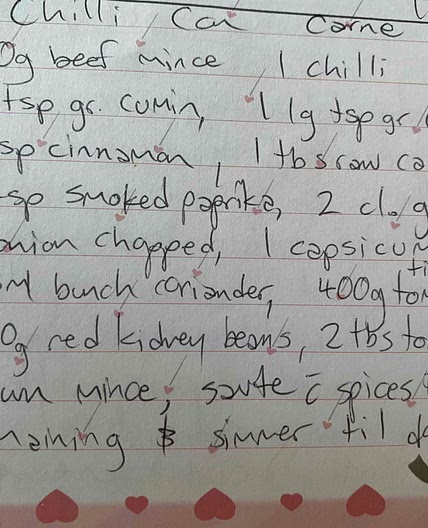 Chilli Con Carne
0g beef mince 1 chilli
tsp gr. cumin, 1 lg tsp gr
sp cinnamon, 1 tbs raw ca
sp smoked paprika, 2 clo/g
onion chopped, 1 capsicum
M bunch coriander, 400g tom
ti
0g red kidney beans, 2 tbs to
wn mince, saute c̄ spices
maining & simmer til do